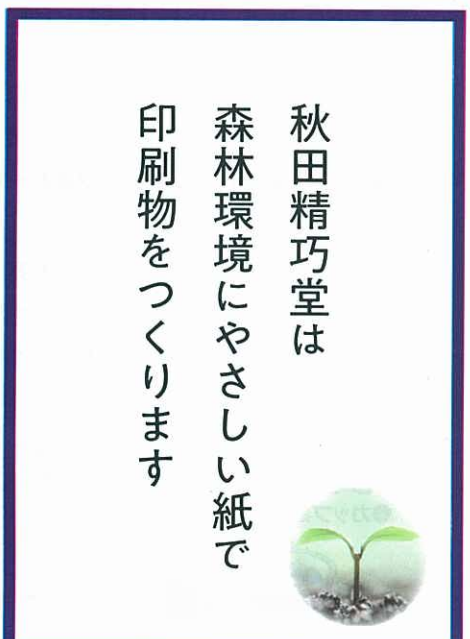 秋田精巧堂は
森林環境にやさしい紙で
印刷物をつくります